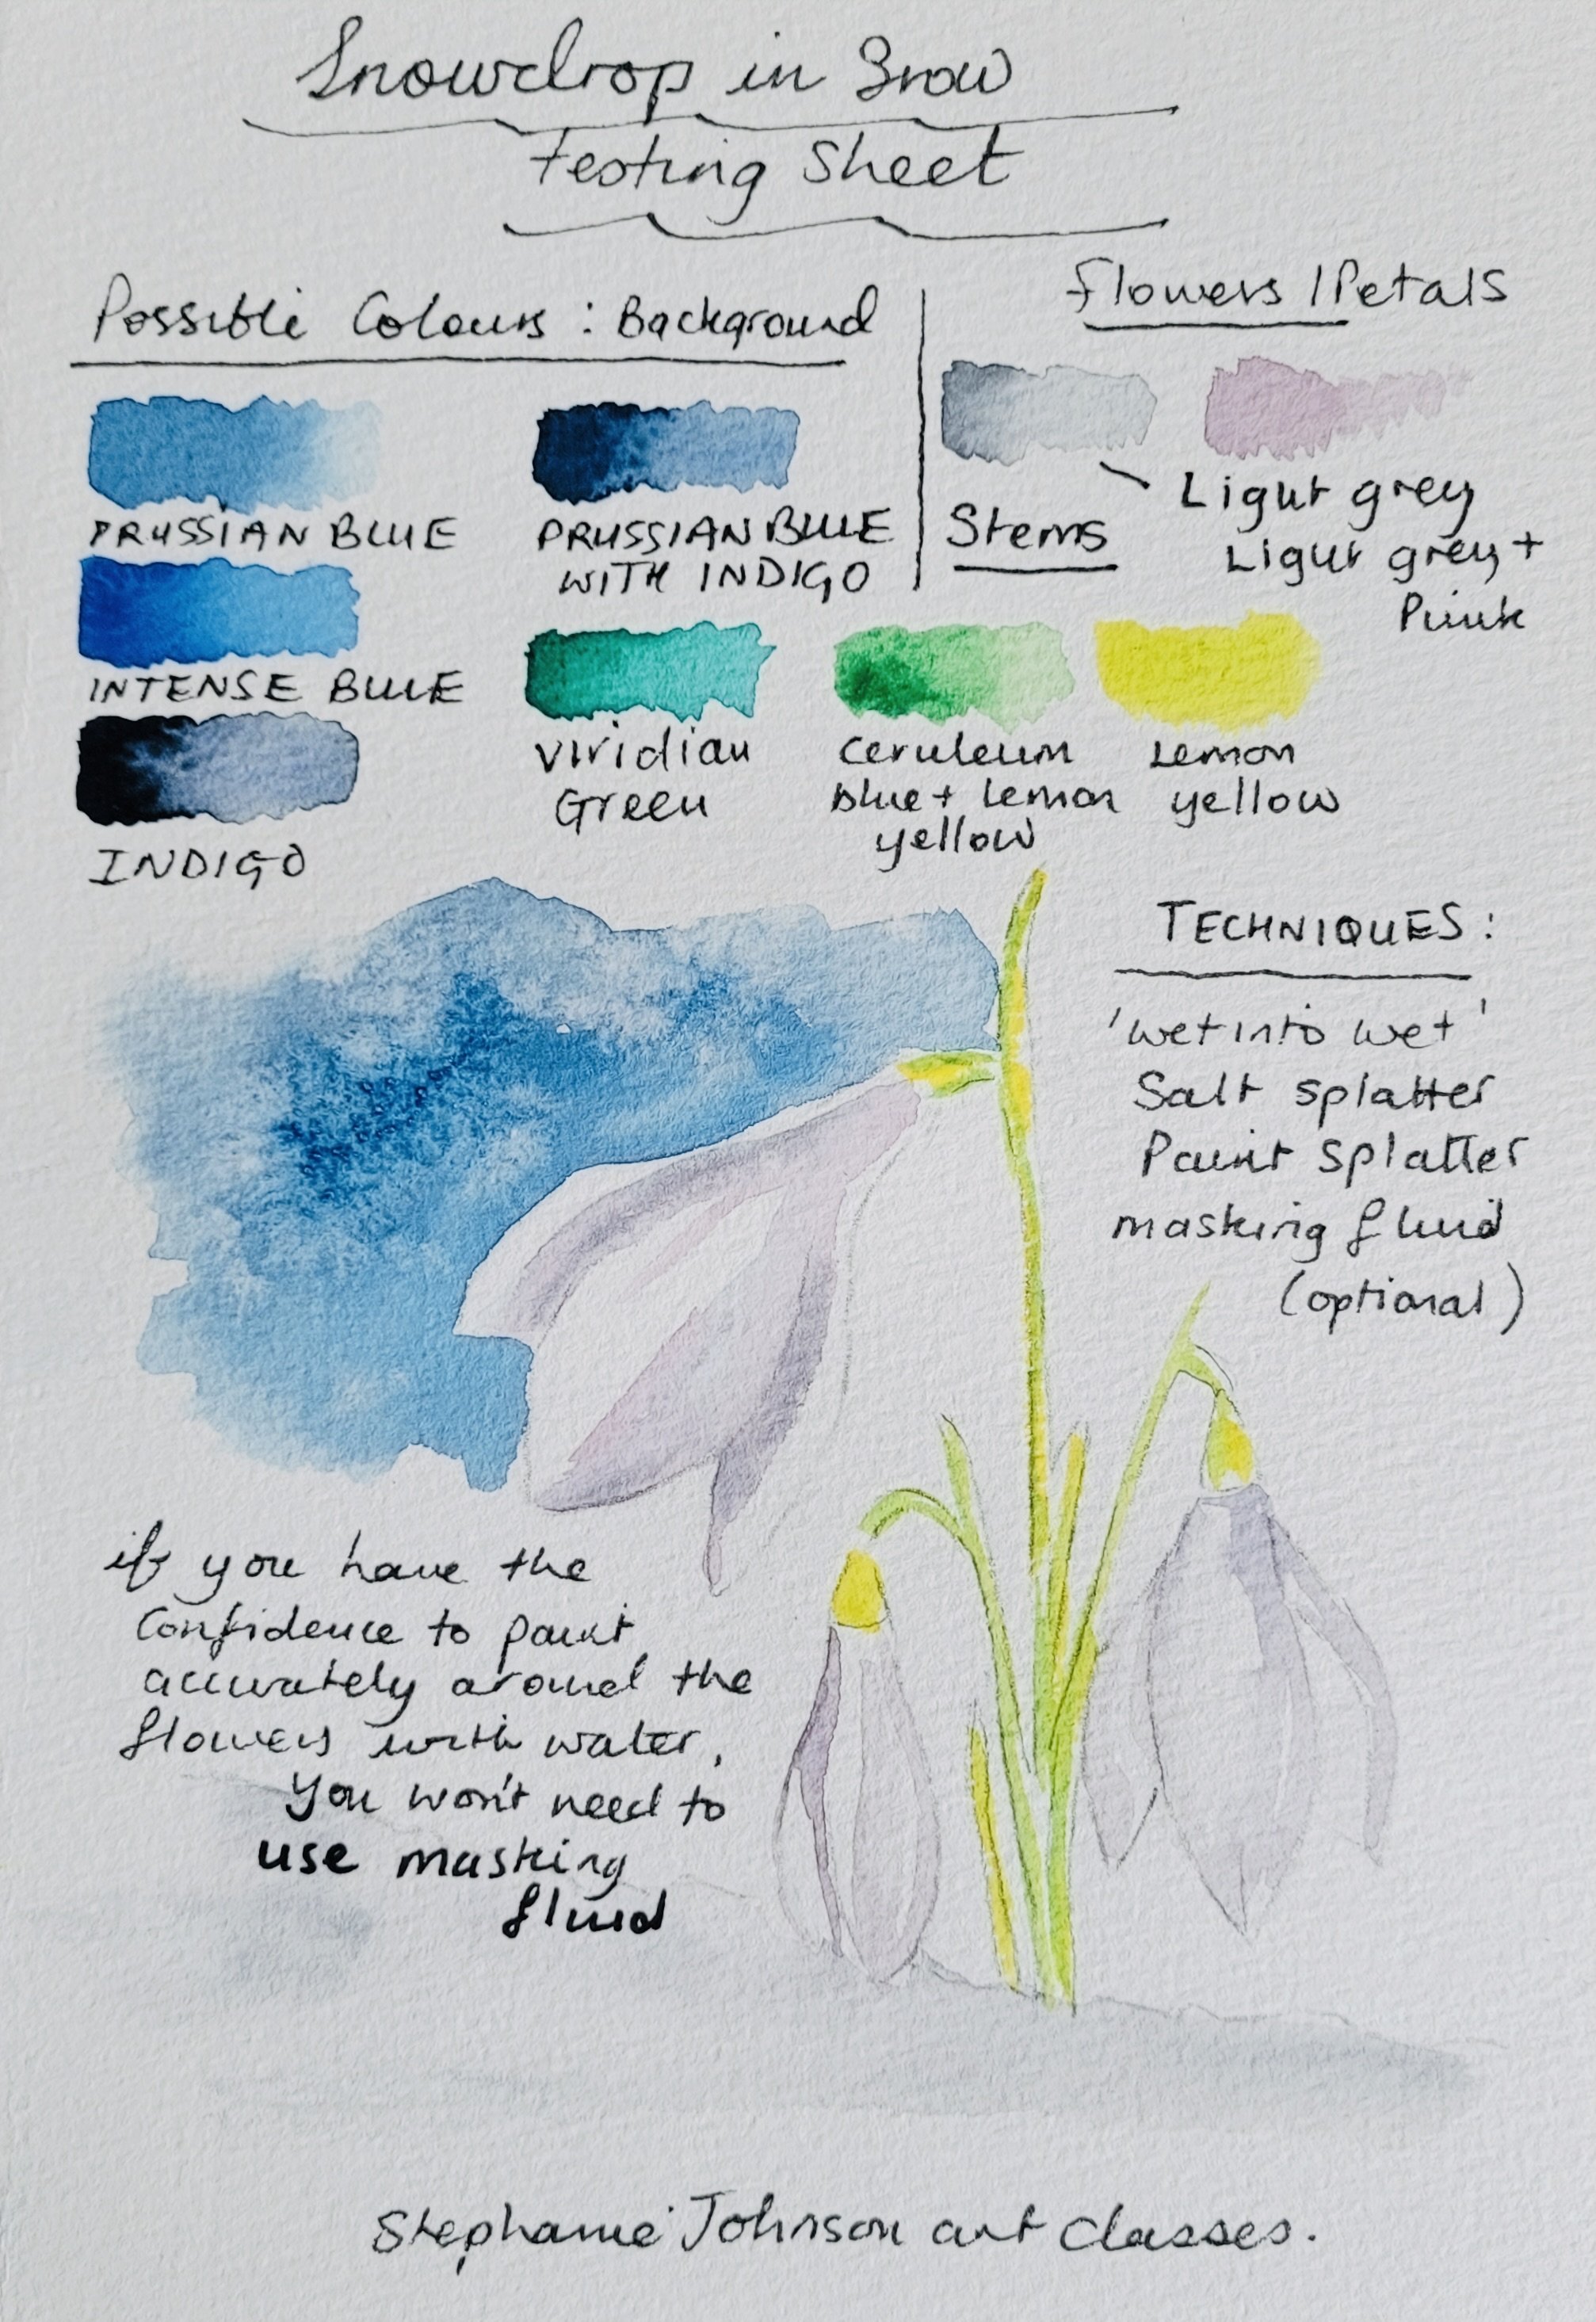 Snowdrop in Snow
Testing Sheet
Possible Colours : Background
PRUSSIAN BLUE
PRUSSIAN BLUE
WITH INDIGO
INTENSE BLUE
INDIGO
Flowers / Petals
Light grey
Light grey +
Pink
Stems
Viridian
Green
Ceruleum
Blue + Lemon
yellow
Lemon
yellow
TECHNIQUES :
'wet into wet'
Salt splatter
Paint splatter
masking fluid
(optional)
if you have the
Confidence to paint
accurately around the
flowers with water,
you won't need to
use masking
fluid
Stephanie Johnson art Classes.